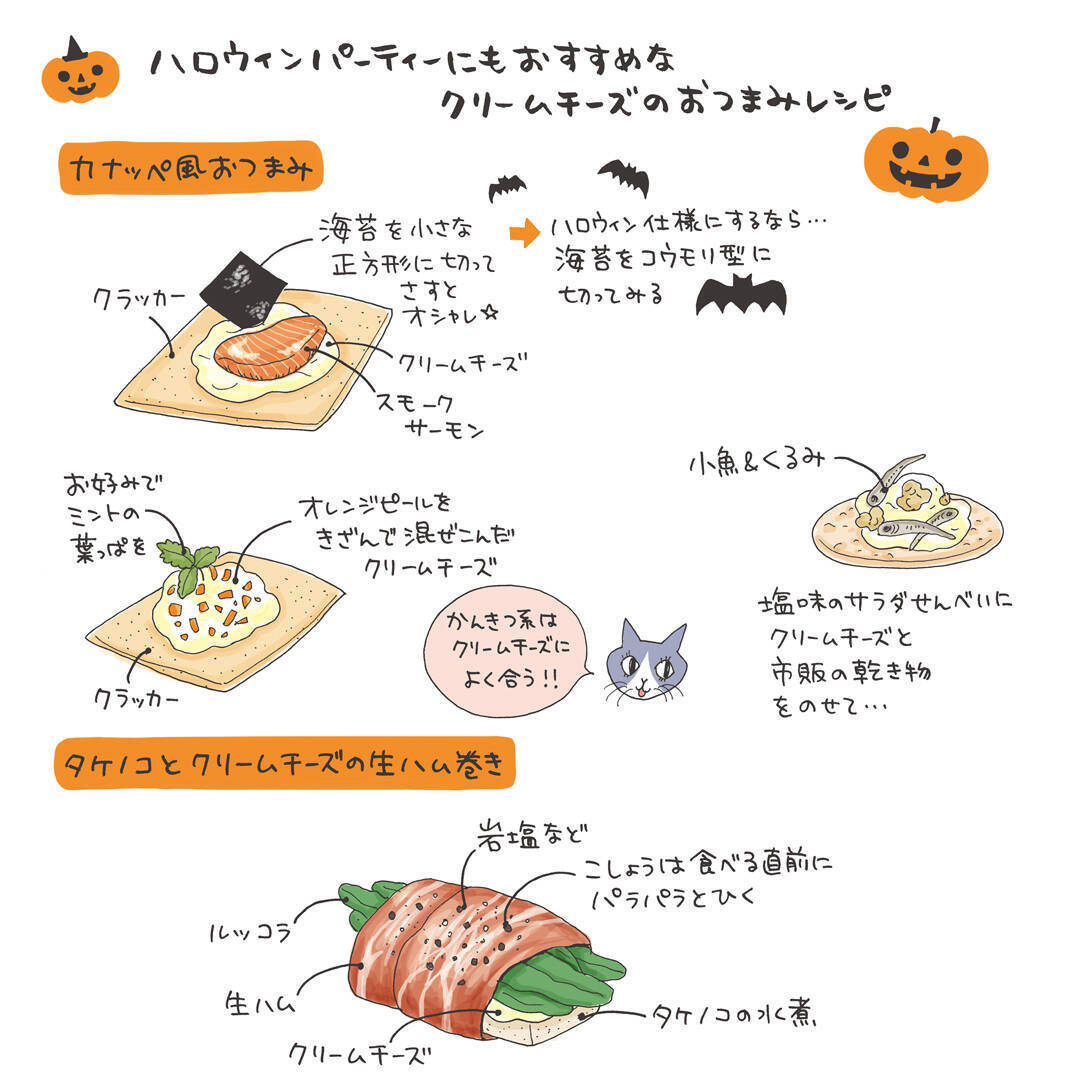 ハロウィンパーティーにもおすすめな
クリームチーズのおつまみレシピ
カナッペ風おつまみ
海苔を小さな
正方形に切って
さすと
オシャレ☆
ハロウィン仕様にするなら…
海苔をコウモリ型に
切ってみる
クラッカー
クリームチーズ
スモーク
サーモン
お好みで
ミントの
葉っぱを
オレンジピールを
きざんで混ぜこんだ
クリームチーズ
クラッカー
かんきつ系は
クリームチーズに
よく合う!!
小魚&くるみ
塩味のサラダせんべいに
クリームチーズと
市販の乾き物
をのせて…
タケノコとクリームチーズの生ハム巻き
岩塩など
こしょうは食べる直前に
パラパラとひく
ルッコラ
生ハム
クリームチーズ
タケノコの水煮